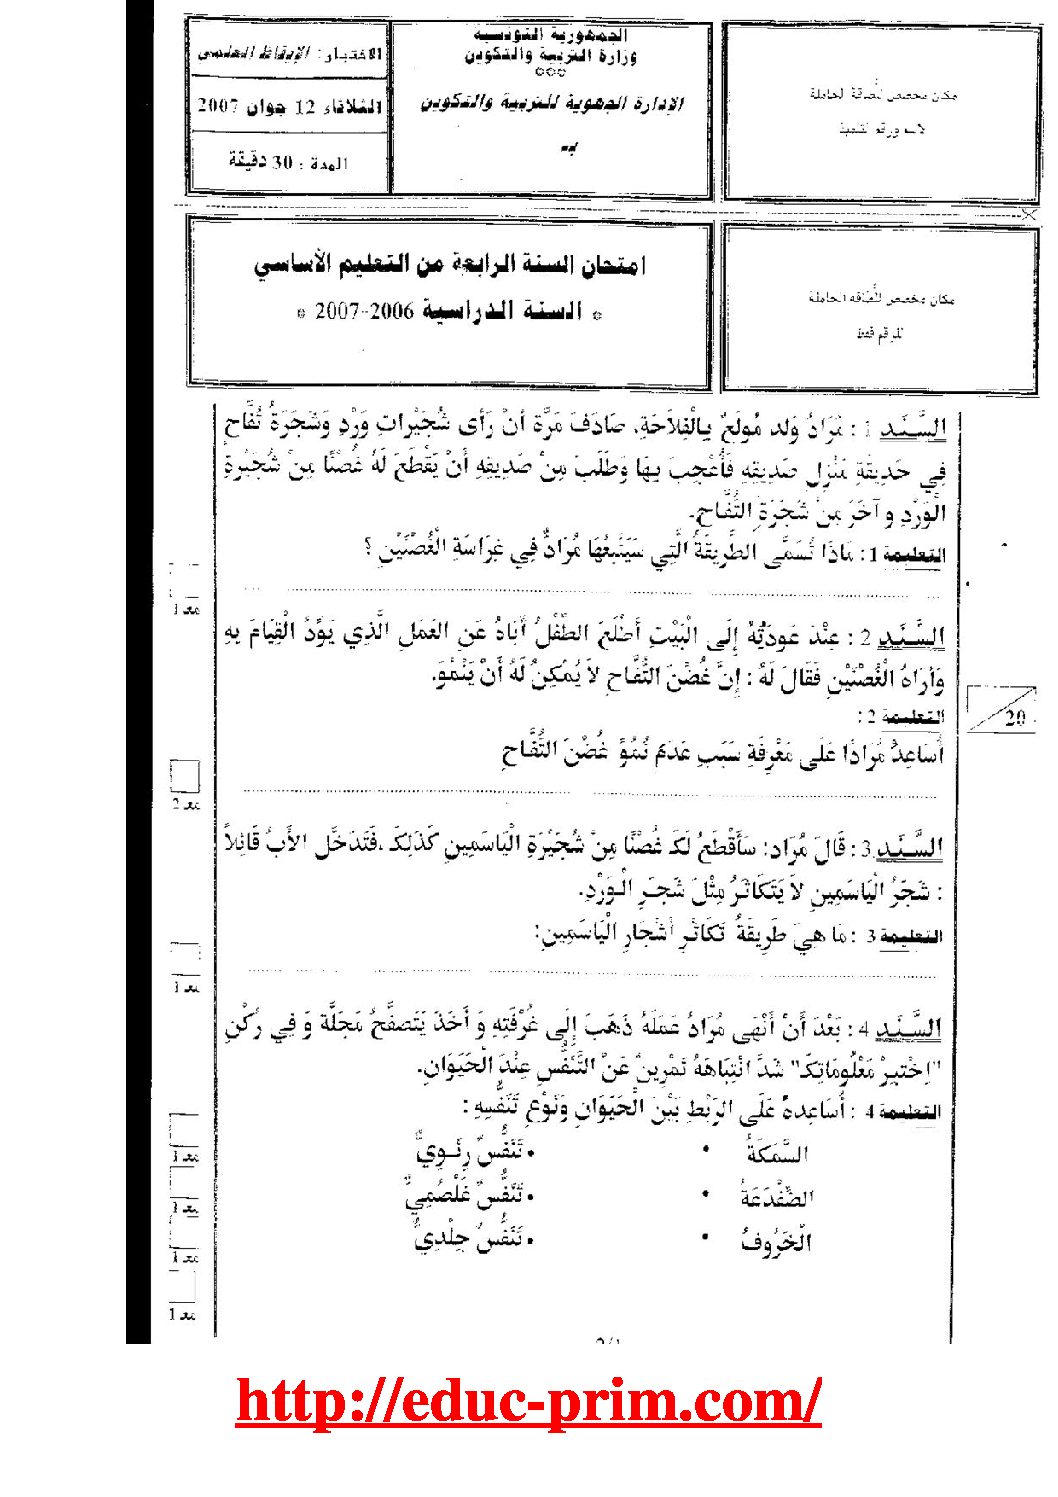 الجمهورية التونسية
وزارة التربية والتكوين
***
الإدارة الجهوية للتربية والتكوين
بـ
الاختبار: الإيقاظ العلمي
الثلاثاء 12 جوان 2007
المدة : 30 دقيقة
مكان مخصص للصاقة الحاملة
لاسم ورقم التلميذ
امتحان السنة الرابعة من التعليم الأساسي
* السنة الدراسية 2006-2007 *
مكان مخصص للصاقة الحاملة
للرقم فقط
السَّنَد 1 : مُرَادُ وَلد مُولَعٌ بِالْفِلاَحَةِ، صَادَفَ مَرَّة أنْ رَأى شُجَيْراتِ وَرْدٍ وَشَجَرَةُ تُفَّاحٍ
فِي حَدِيقَةِ مَنْزِلِ صَدِيقِهِ فَأُعْجِبَ بِهَا وَطَلَبَ مِنْ صَدِيقِهِ أَنْ يَقْطَعَ لَهُ غُصْنًا مِنْ شُجَيْرَةِ
الْوَرْدِ و آخَرَ مِنْ شَجَرَةِ التُّفَّاحِ.
التعليمة 1 : مَاذَا تُسَمَّى الطَّرِيقَةُ الَّتِي سَيَتَّبِعُهَا مُرَادٌ فِي غِرَاسَةِ الْغُصْنَيْنِ ؟
مع 1
السَّنَد 2 : عِنْدَ عَوْدَتِهُ إِلَى الْبَيْتِ أَطْلَعَ الطِّفْلُ أَبَاهُ عَنِ العَمَلِ الَّذِي يَوَدُّ الْقِيَامَ بِهِ
وَأَرَاهُ الْغُصْنَيْنِ فَقَالَ لَهُ : إِنَّ غُصْنَ التُّفَّاحِ لاَ يُمْكِنُ لَهُ أَنْ يَنْمُوَ.
20
التعليمة 2 :
أُسَاعِدُ مُرَادًا عَلَى مَعْرِفَةِ سَبَبِ عَدَمِ نُمُوِّ غُصْنِ التُّفَّاحِ
مع 2
السَّنَد 3 : قَالَ مُرَاد: سَأَقْطَعُ لَكَ غُصْنًا مِنْ شُجَيْرَةِ الْيَاسَمِينِ كَذَلِكَ ،فَتَدَخَّل الأَبُ قَائِلاً
: شَجَرُ الْيَاسَمِينِ لاَ يَتَكَاثَرُ مِثْلَ شَجَرِ الْوَرْدِ.
التعليمة 3 : مَا هِيَ طَرِيقَةُ تَكَاثُرِ أشْجَارِ الْيَاسَمِينِ:
مع 1
السَّنَد 4 : بَعْدَ أَنْ أَنْهَى مُرَادُ عَمَلَهُ ذَهَبَ إِلَى غُرْفَتِهِ وَ أَخَذَ يَتَصَفَّحُ مَجَلَّة وَ فِي رُكْنِ
"اِخْتَبِرْ مَعْلُومَاتِكَ" شَدَّ انْتِبَاهَهُ تَمْرِينٌ عَنْ التَّنَفُّسِ عِنْدَ الْحَيَوَانِ.
التعليمة 4 : أُسَاعِدهُ عَلَى الرَّبْطِ بَيْنَ الْحَيَوَانِ وَنَوْعِ تَنَفُّسِهِ :
السَّمَكَةُ • • تَنَفُّسٌ رِئَوِيٌّ
مع 1
الضِّفْدَعَةُ • • تَنَفُّسٌ غَلْصُمِيٌّ
مع 1
الْخَرُوفُ • • تَنَفُّسٌ جِلْدِيٌّ
مع 1
مع 1
http://educ-prim.com/